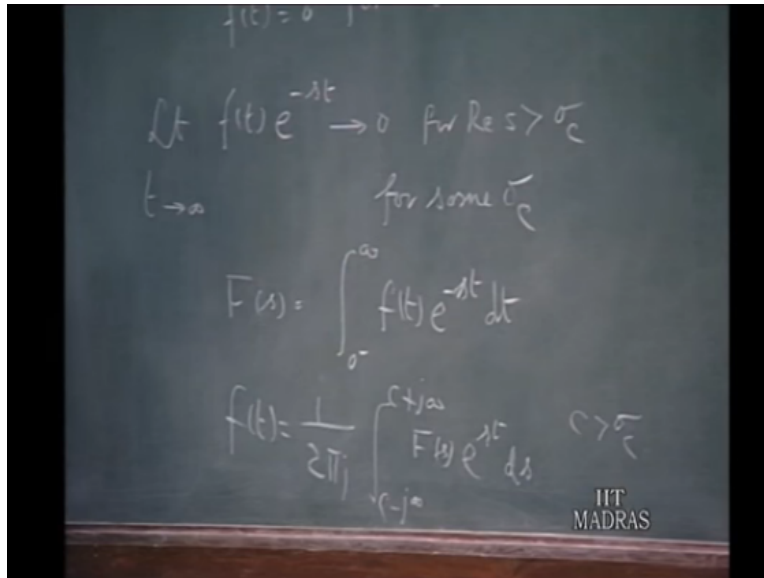 f(t) = 0 for
Lt f(t) e^{-st} → 0 for Re s > σ_c
t → ∞
for some σ_c
F(s) = ∫_{0^-}^{∞} f(t) e^{-st} dt
f(t) = \frac{1}{2πj} ∫_{c-j∞}^{c+j∞} F(s) e^{st} ds c > σ_c
IIT
MADRAS